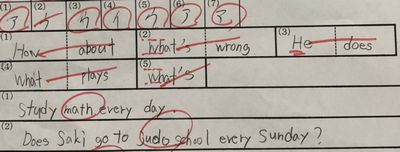 (1) (2) (3) (4) (5) (6) (7)
(1) How about (2) What's wrong (3) He does
(4) What plays (5) What's
(1)
Study math every day.
(2)
Does Saki go to school every Sunday?